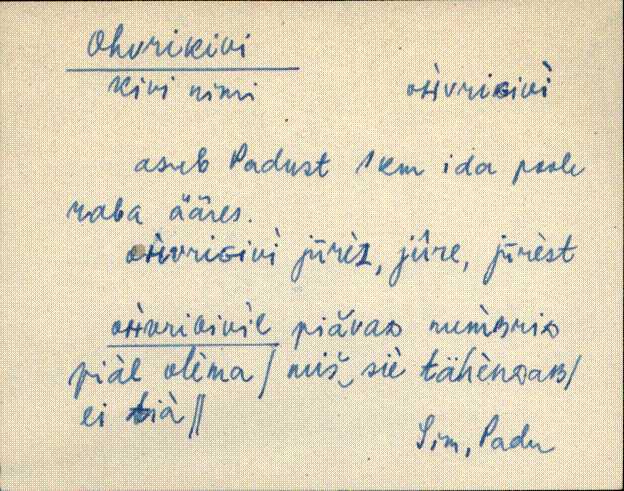 Ohvrikivi
kivi nimi oʜ̀vriɢivì
asub Padust 1 km ida poole
raba ääres.
oʜ̀vriɢivì jūrèz, jûre, jūrèst
oʜ̀vriɢivìl piävaᴅ numèʙriᴅ
piàl olèma / miš siè tähènᴅaʙ /
ei tià //
Sim, Padu